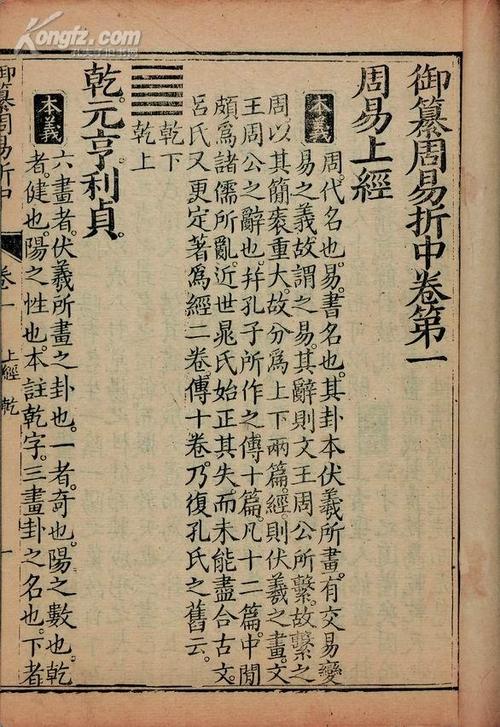 Kongfz.com
孔夫子旧书网
御纂周易折中卷第一
周易上經
本義
周。代名也。易。書名也。其卦本伏羲所畫。有交易變
易之義。故謂之易。其辭則文王周公所繫。故繫之
周。以其簡袠重大。故分爲上下兩篇。經則伏羲之畫。文
王周公之辭也。幷孔子所作之傳十篇。凡十二篇。中閒
頗爲諸儒所亂。近世晁氏始正其失。而未能盡合古文。
呂氏又更定著爲經二卷。傳十卷。乃復孔氏之舊云。
乾下
乾上
乾。元亨利貞。
本義
六畫者。伏羲所畫之卦也。一者。奇也。陽之數也。乾
者。健也。陽之性也。本註乾字。三畫卦之名也。下者
御纂周易折中
卷一
上經 乾
一